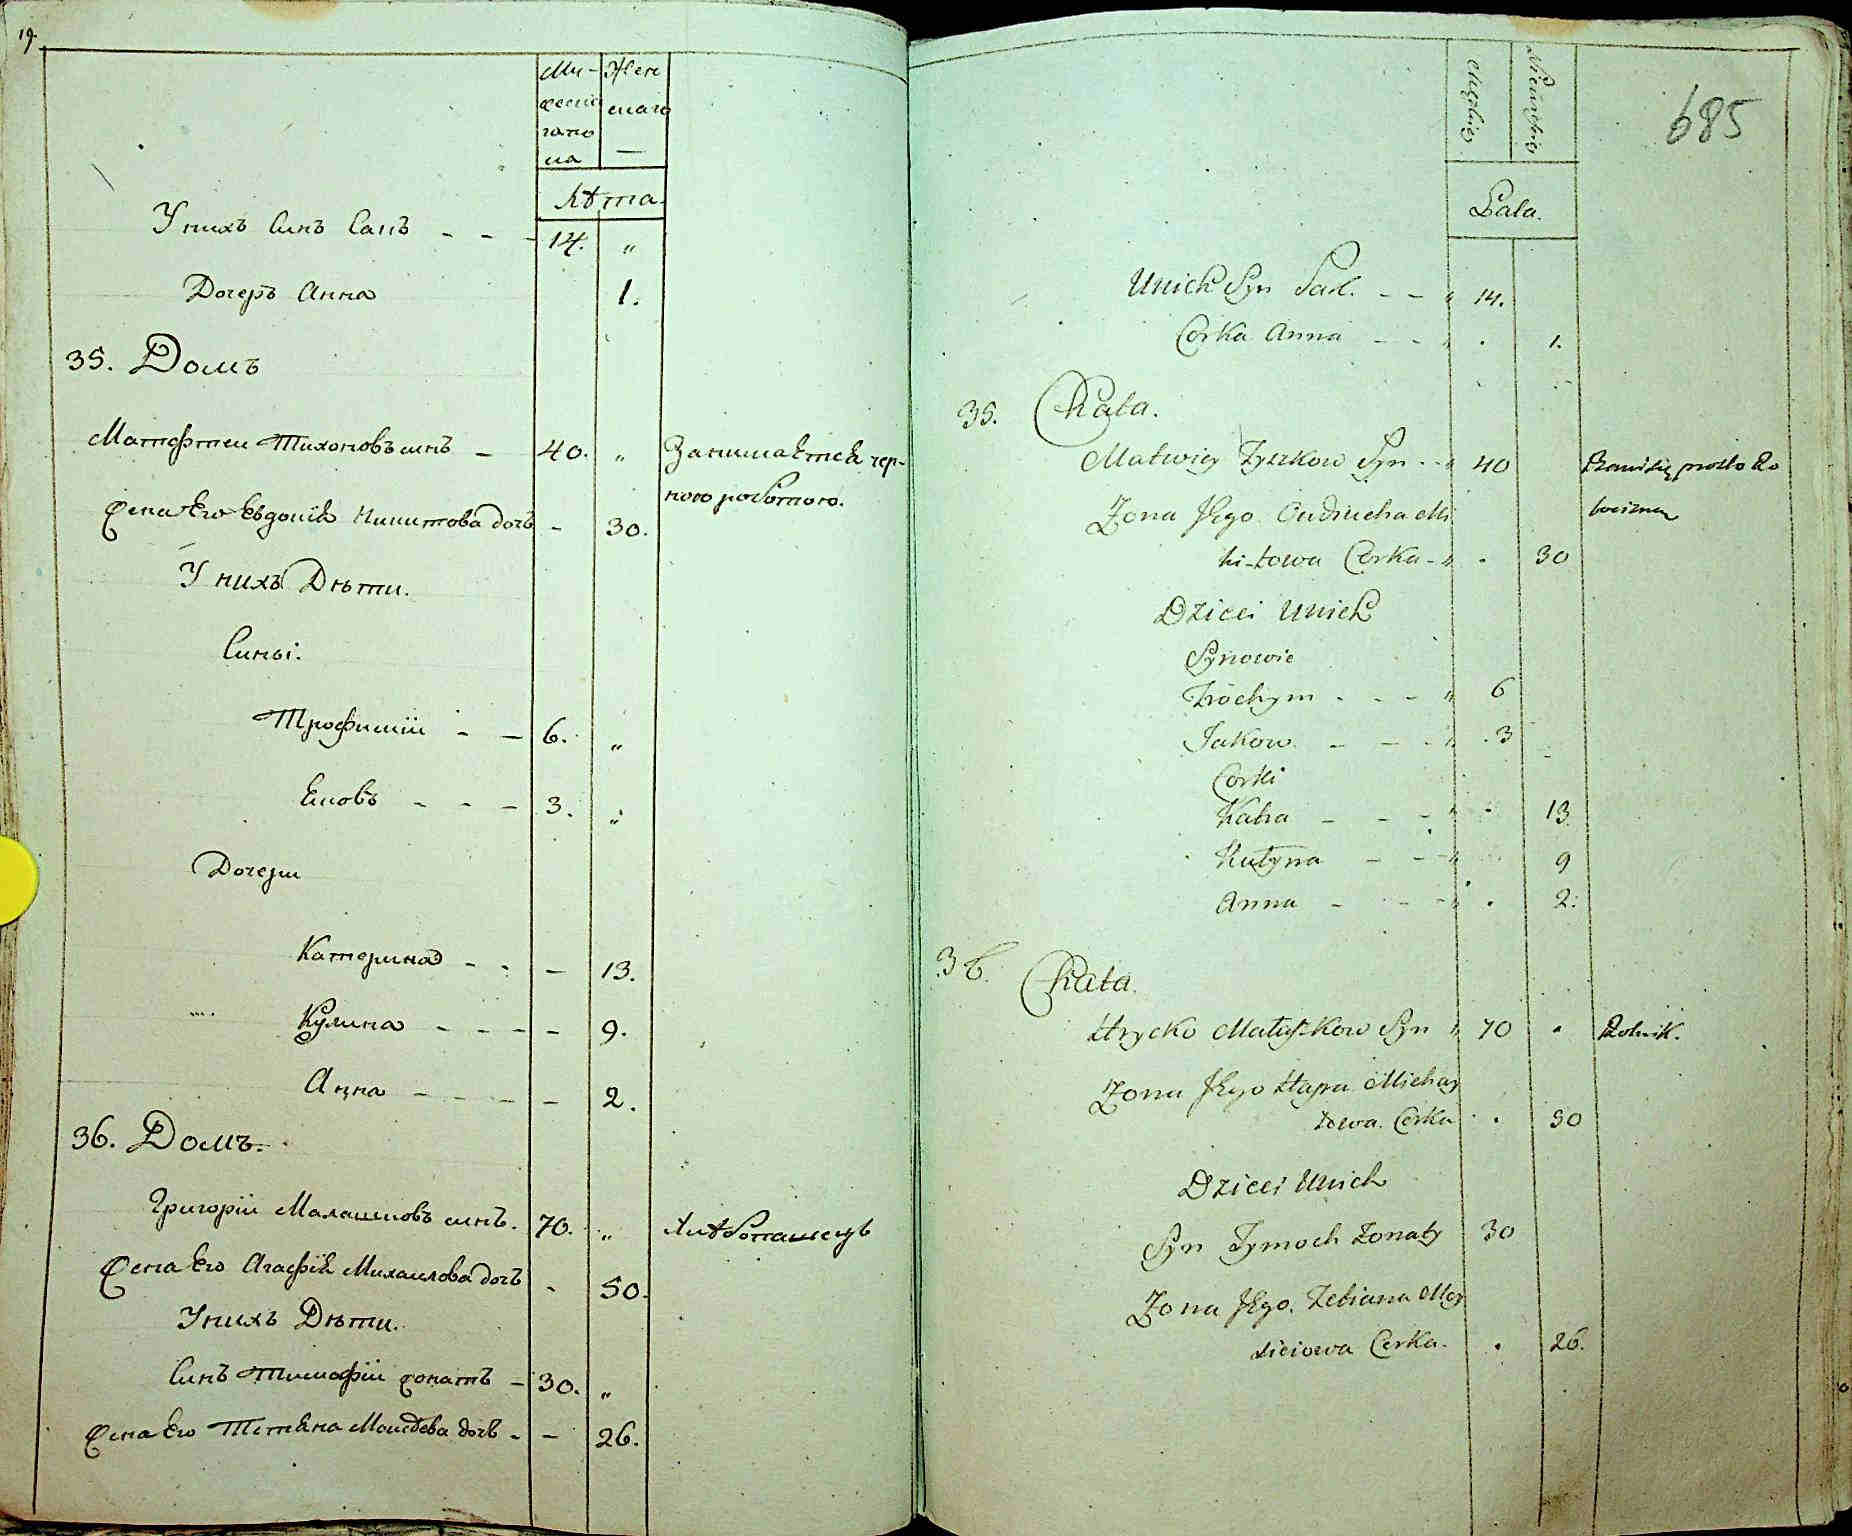 19.
Му-
жеска
гапо
ла
Жен
скаго
—
Лѣта.
У нихъ Синъ Савъ - - - 14. „
Дочеръ Анна 1.
35. Домъ
Матфтеи Тихоновъ синъ - 40. „ Занимаѣтся чер-
ною роботою.
Жена Его Евдокія Никитова дочъ - 30.
У нихъ Дѣти.
Сины.
Трофимій - - 6. „
Яковъ - - - 3. „
Дочери
Катерина - - - 13.
Кулина - - - - 9.
Анна - - - - - 2.
36. Домъ.
Григорій Малашковъ синъ. 70. „ Хлѣбопашецъ
Жена Его Агафія Михаилова дочъ - 50.
У нихъ Дѣти.
Синъ Тимофій жонатъ - 30. „
Жена Его Тетяна Моисѣева дочъ - - 26.
685
Męzkiey
Zienskiey
Lata.
Unich Syn Sak. - - „ 14.
Corka Anna - - „ . 1.
35. Chata.
Matwiey Tyszkow Syn - „ 40
Zona Jego Oudiucha Mi
ki-towa Corka - „ . 30
Dzieci Unich
Synowie
Trochym - - - „ 6
Jakow - - - „ . 3
Corki
Katra - - - „ 13
Kulyna - - - „ 9
Anna - - - „ . 2.
36. Chata.
Hrycko Matyszkow Syn „ 70 „ Rolnik.
Zona Jego Hapa Michay
lowa Corka . . 50
Dzieci Unich
Syn Tymoch Zonaty 30
Zona Jego. Tetiana Moy
sieiowa Corka. . 26.